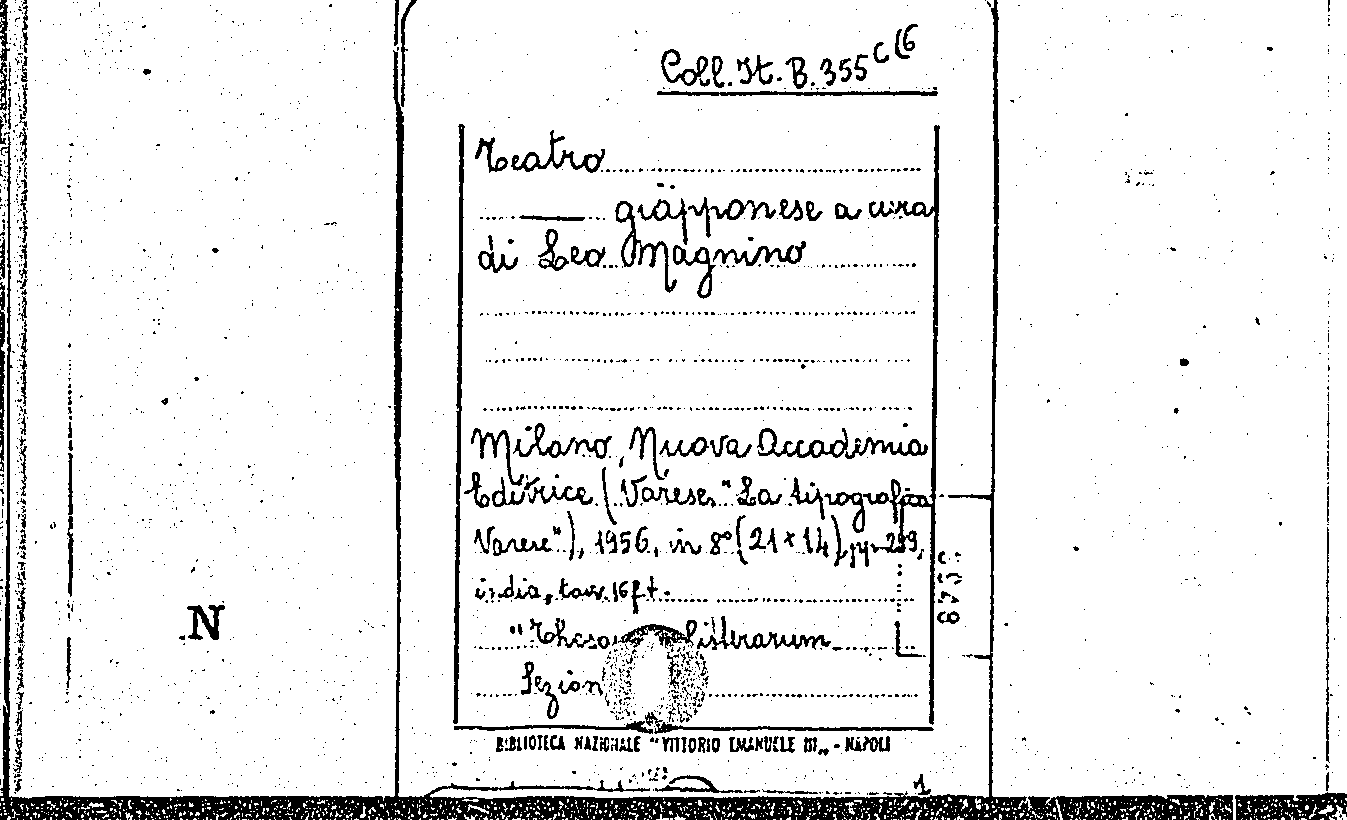 Coll. It. B. 355 C (6
Teatro
—— giapponese a cura
di Leo Magnino
Milano, Nuova Accademia
Editrice (Varese, "La tipografica
Varese"), 1956, in 8° (21 x 14), pp. 299,
india, tavv. 16 f. t.
"Thesau litterarum
Sezion
N
BIBLIOTECA NAZIONALE "VITTORIO EMANUELE III„ - NAPOLI
1